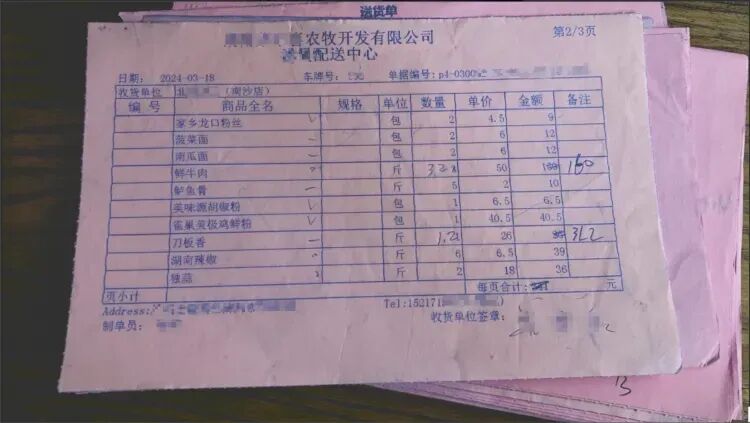 送货单
农牧开发有限公司
配送中心
第2/3页
日期： 2024-03-18 车牌号： 单据编号：p4-0300
收货单位 （南沙店）
编号 商品全名 规格 单位 数量 单价 金额 备注
家乡龙口粉丝 包 2 4.5 9
菠菜面 包 2 6 12
南瓜面 包 2 6 12
鲜牛肉 斤 3.2 50 160
鲈鱼骨 斤 5 2 10
美味源胡椒粉 包 1 6.5 6.5
雀巢美极鸡鲜粉 包 1 40.5 40.5
刀板香 斤 26
湖南辣椒 斤 6 6.5 39
独蒜 斤 2 18 36
页小计 每页合计： 元
Address: Tel:152171
制单员： 收货单位签章：